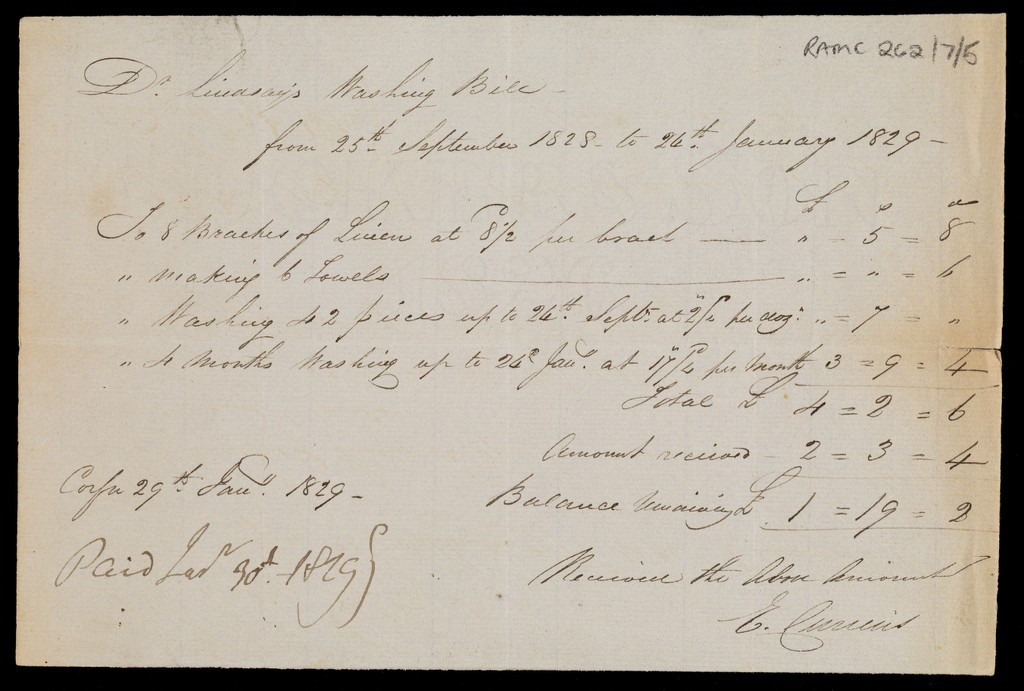 RAMC 262/7/5
Dr Lindsay's Washing Bill -
from 25th September 1828 - to 24th January 1829 -
£ s d
To 8 Braches of Linen at 8½ per brach — " = 5 = 8
" making 6 Towels — " = " = 6
" Washing 42 pieces up to 24th Septr. at 2/ per doz: " = 7 = "
" 4 Months Washing up to 24th Jany. at 17/4 per Month 3 = 9 = 4
Total £ 4 = 2 = 6
Amount received - 2 = 3 = 4
Balance remaining £ 1 = 19 = 2
Corfu 29th Jany. 1829 -
Paid Jany 30th. 1829
Received the above Amount
E.